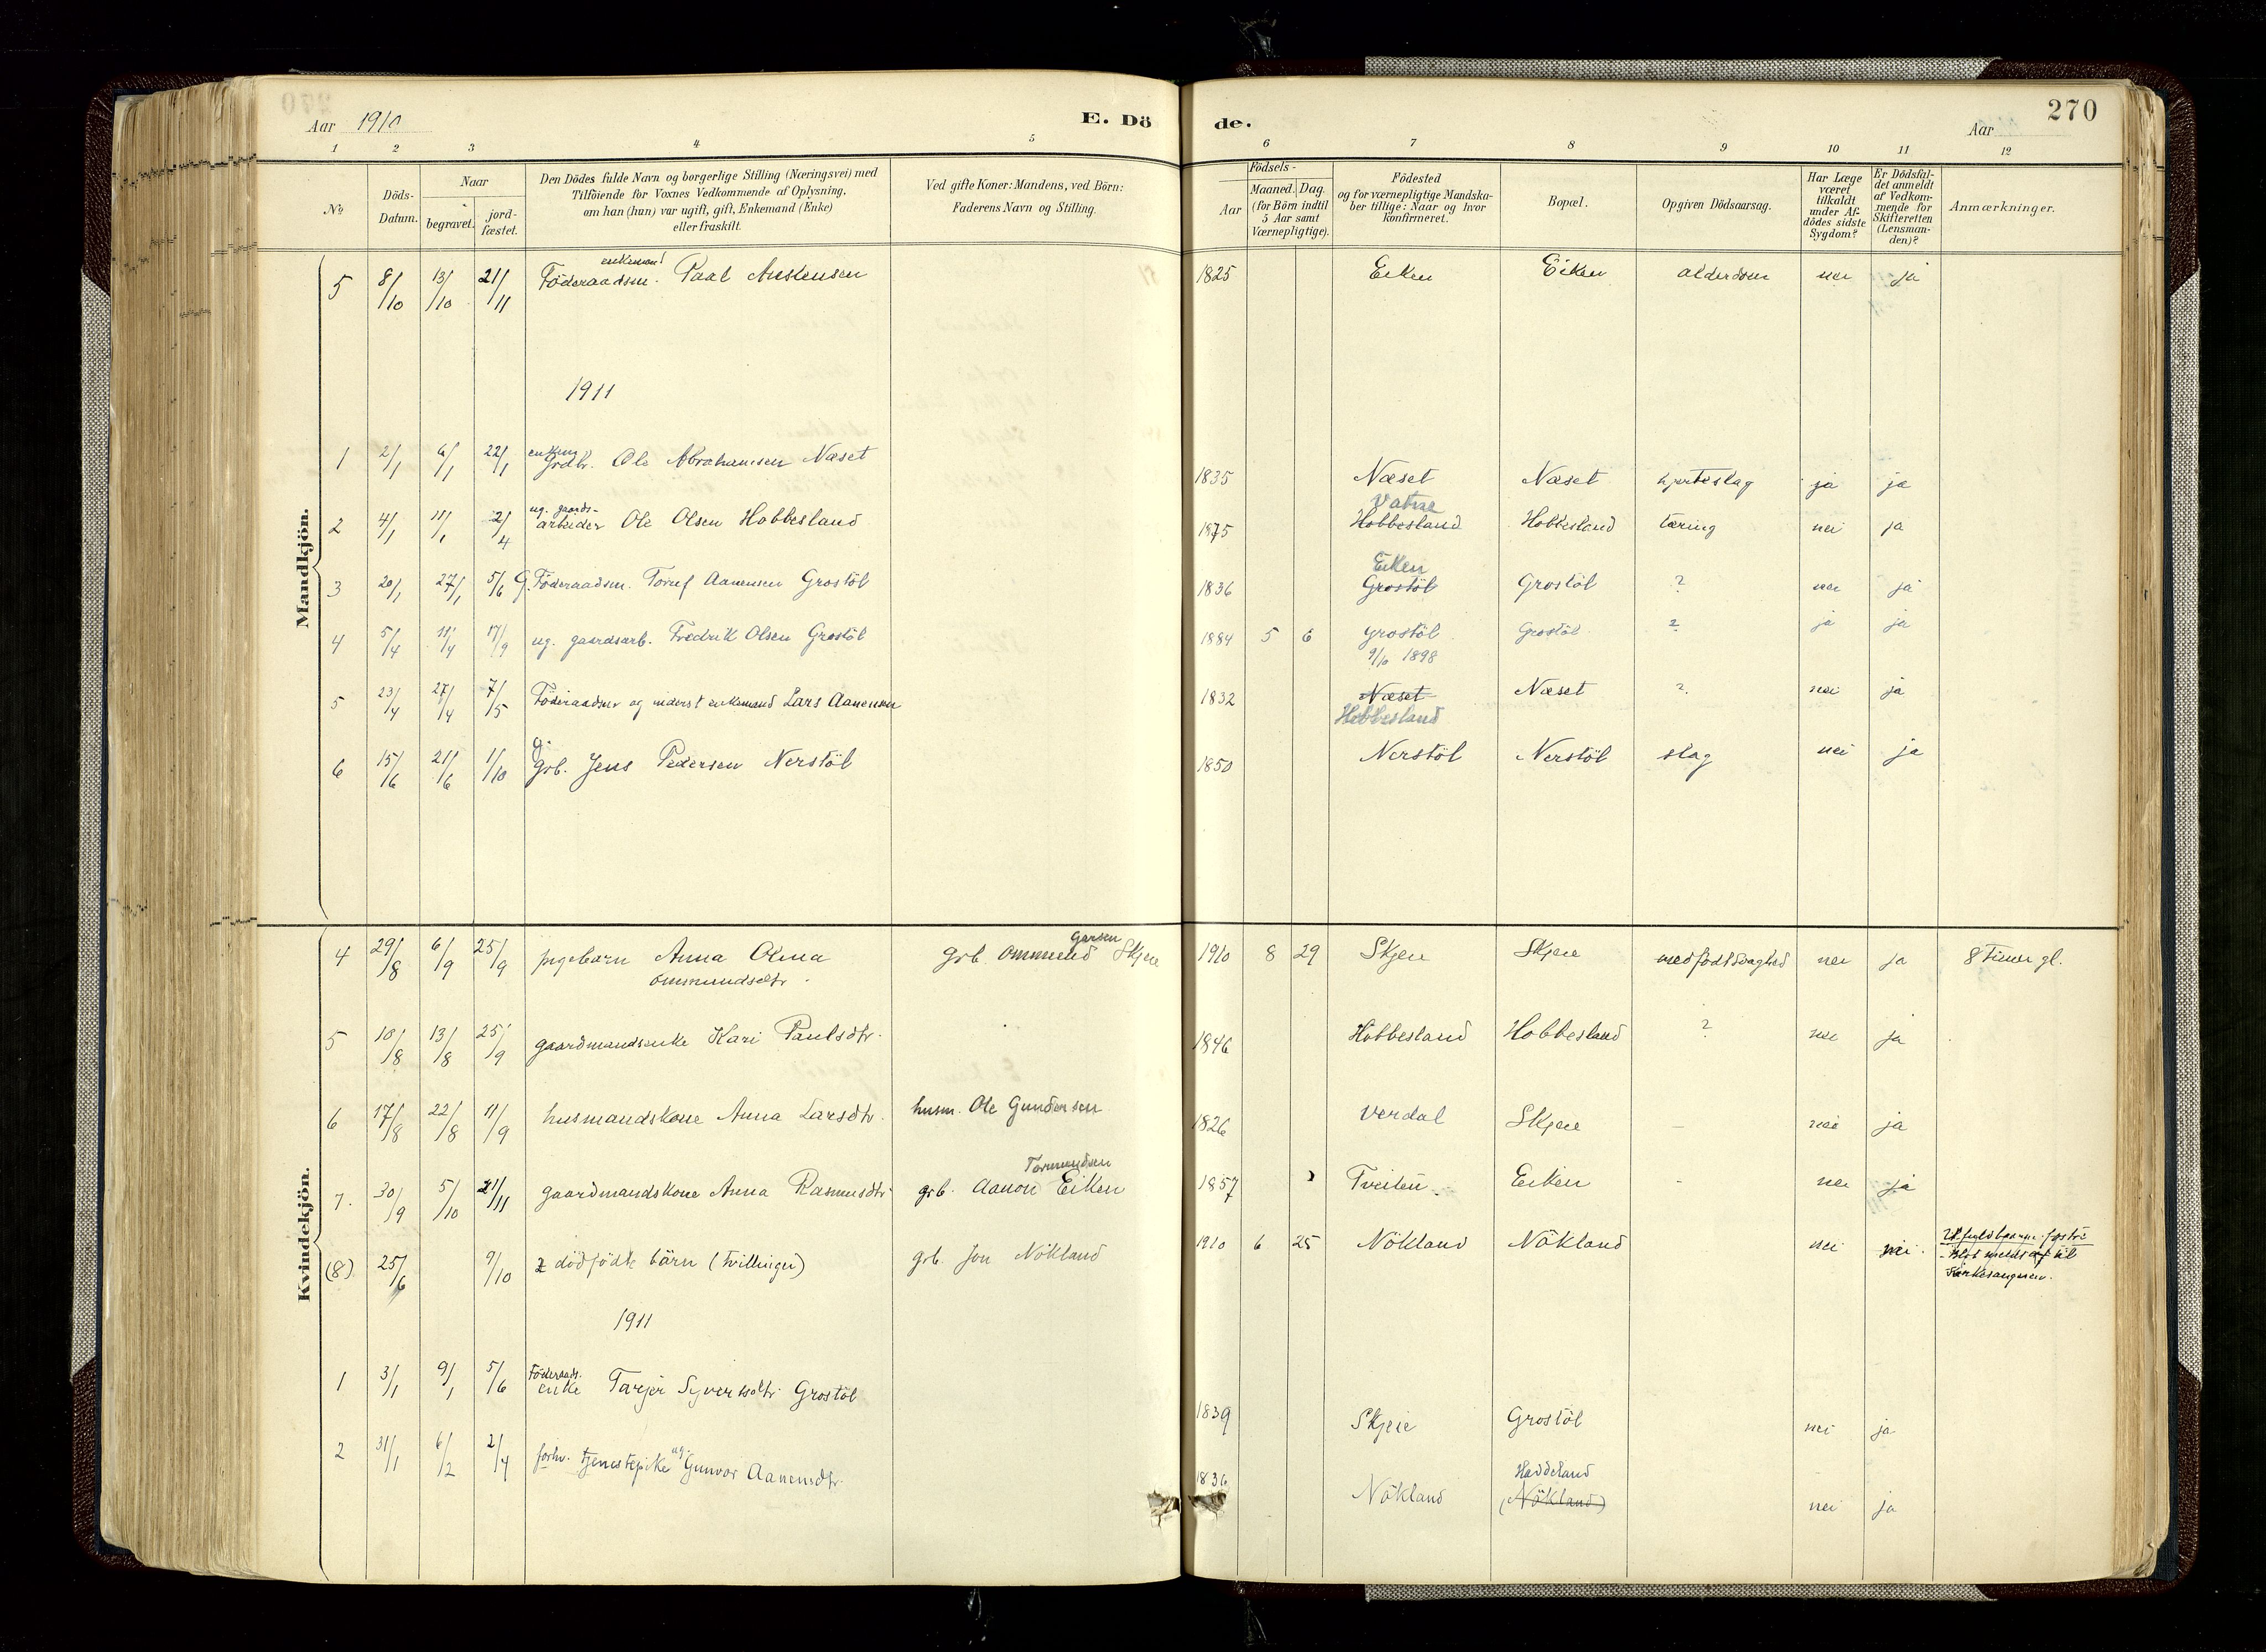 Aar 1910
E. Dö
de.
Aar
270
1 2 3 4 5 6 7 8 9 10 11 12
No.
Döds-
Datum.
Naar
begravet.
jord-
fæstet.
Den Dödes fulde Navn og borgerlige Stilling (Næringsvei) med
Tilföiende for Voxnes Vedkommende af Oplysning,
om han (hun) var ugift, gift, Enkemand (Enke)
eller fraskilt.
Ved gifte Koner: Mandens, ved Börn:
Faderens Navn og Stilling.
Födsels-
Aar
Maaned. Dag.
(for Börn indtil
5 Aar samt
Værnepligtige).
Födested
og for værnepligtige Mandska-
ber tillige: Naar og hvor
konfirmeret.
Bopæl.
Opgiven Dödsaarsag.
Har Læge
været
tilkaldt
under Af-
dödes sidste
Sygdom?
Er Dödsfal-
det anmeldt
af Vedkom-
mende for
Skifteretten
(Lensman-
den)?
Anmærkninger.
Mandkjön.
enkemand
5 8/10 13/10 21/11 Föderaadsm. Paal Anstensen 1825 Eiken Eiken alderdom nei ja
1911
enkem.
1 2/1 6/1 22/1 Grdbr. Ole Abrahamsen Næset 1835 Næset Næset hjerteslag ja ja
ug. gaards- Vatne
2 4/1 11/1 2/4 arbeider Ole Olsen Hobbesland 1875 Hobbesland Hobbesland tæring nei ja
Eiken
3 20/1 27/1 5/6 G. Föderaadsm. Toruf Aanensen Grostöl 1836 Grostöl Grostöl ? nei ja
4 5/4 11/4 17/9 ug. gaardsarb. Fredrik Olsen Grostöl 1884 5 6 Grostöl Grostöl ? ja ja
9/10 1898
5 23/4 27/4 7/5 Föderaadsm og inderst enkemand Lars Aanensen 1832 Næset Næset ? nei ja
Hobbesland
g.
6 15/6 21/6 1/10 grb. Jens Pedersen Nerstöl 1850 Nerstöl Nerstöl slag nei ja
Kvindekjön.
4 29/8 6/9 25/9 pigebarn Anna Olina grb. Ommund Skjeie 1910 8 29 Skjeie Skjeie medfödt svaghed nei ja 8 Timer gl.
Ommundsdtr.
5 10/8 13/8 25/9 gaardmandsenke Kari Paulsdtr. 1846 Hobbesland Hobbesland ? nei ja
6 17/8 22/8 11/9 husmandskone Anna Larsdtr. husm. Ole Gundersen 1826 Verdal Skjeie – nei ja
Tormundsen
7. 30/9 5/10 21/11 gaardmandskone Anna Rasmusdtr grb. Aanon Eiken 1857 Tveiten Eiken - nei ja
(8) 25/6 9/10 2 dödfödte börn (tvillinger) grb. Jon Nökland 1910 6 25 Nökland Nökland nei nei.
til
Kirkesangeren.
1911
Föderaads-
1 3/1 9/1 5/6 enke Tarjer Syvertsdtr Grostöl 1839 Skjeie Grostöl nei ja
ug. Haddeland
2 31/1 6/2 2/4 forhv. tjenestepike Gunvor Aanensdtr. 1836 Nökland (Nökland) nei ja